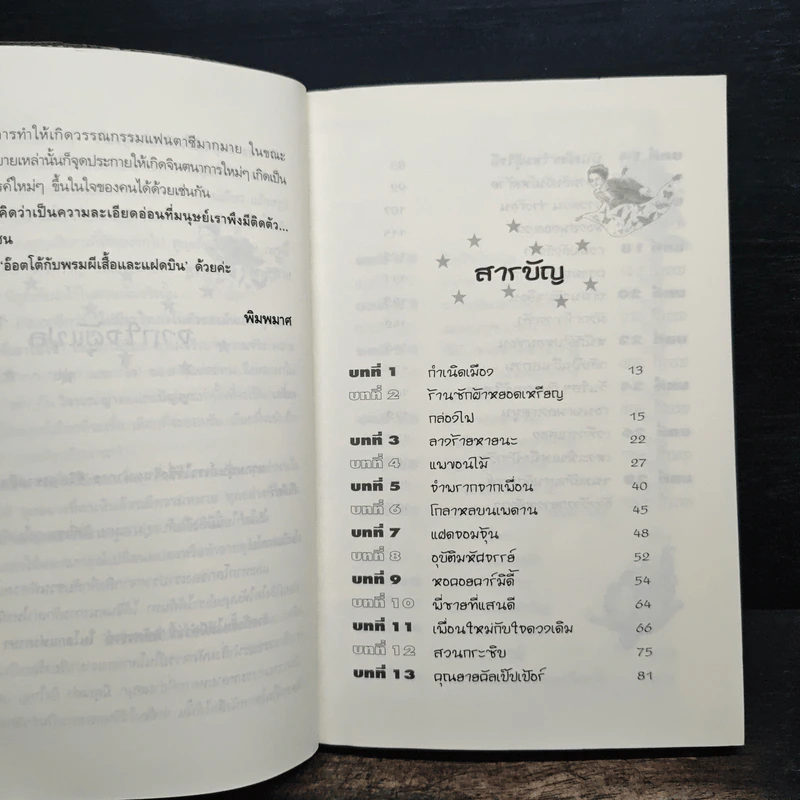 การทำให้เกิดวรรณกรรมแฟนตาซีมากมาย ในขณะ
ยายเหล่านั้นก็จุดประกายให้เกิดจินตนาการใหม่ๆ เกิดเป็น
รค์ใหม่ๆ ขึ้นในใจของคนได้ด้วยเช่นกัน
คิดว่าเป็นความละเอียดอ่อนที่มนุษย์เราพึงมีติดตัว...
ชน
'อ๊อตโต้กับพรมผีเสื้อและแฝดบิน' ด้วยค่ะ
พิมพมาศ
สารบัญ
บทที่ 1 กำเนิดเมือง 13
บทที่ 2 ร้านซักผ้าหยอดเหรียญ
กล่องไฟ 15
บทที่ 3 ลางร้ายหายนะ 22
บทที่ 4 แพขอนไม้ 27
บทที่ 5 จำพรากจากเพื่อน 40
บทที่ 6 โกลาหลบนเพดาน 45
บทที่ 7 แฝดจอมจุ้น 48
บทที่ 8 อุบัติมหัศจรรย์ 52
บทที่ 9 หอคอยคาร์มิดี้ 54
บทที่ 10 พี่ชายที่แสนดี 64
บทที่ 11 เพื่อนใหม่กับใจดวงเดิม 66
บทที่ 12 สวนกระซิบ 75
บทที่ 13 คุณยายคัลเป็ปเป้อร์ 81